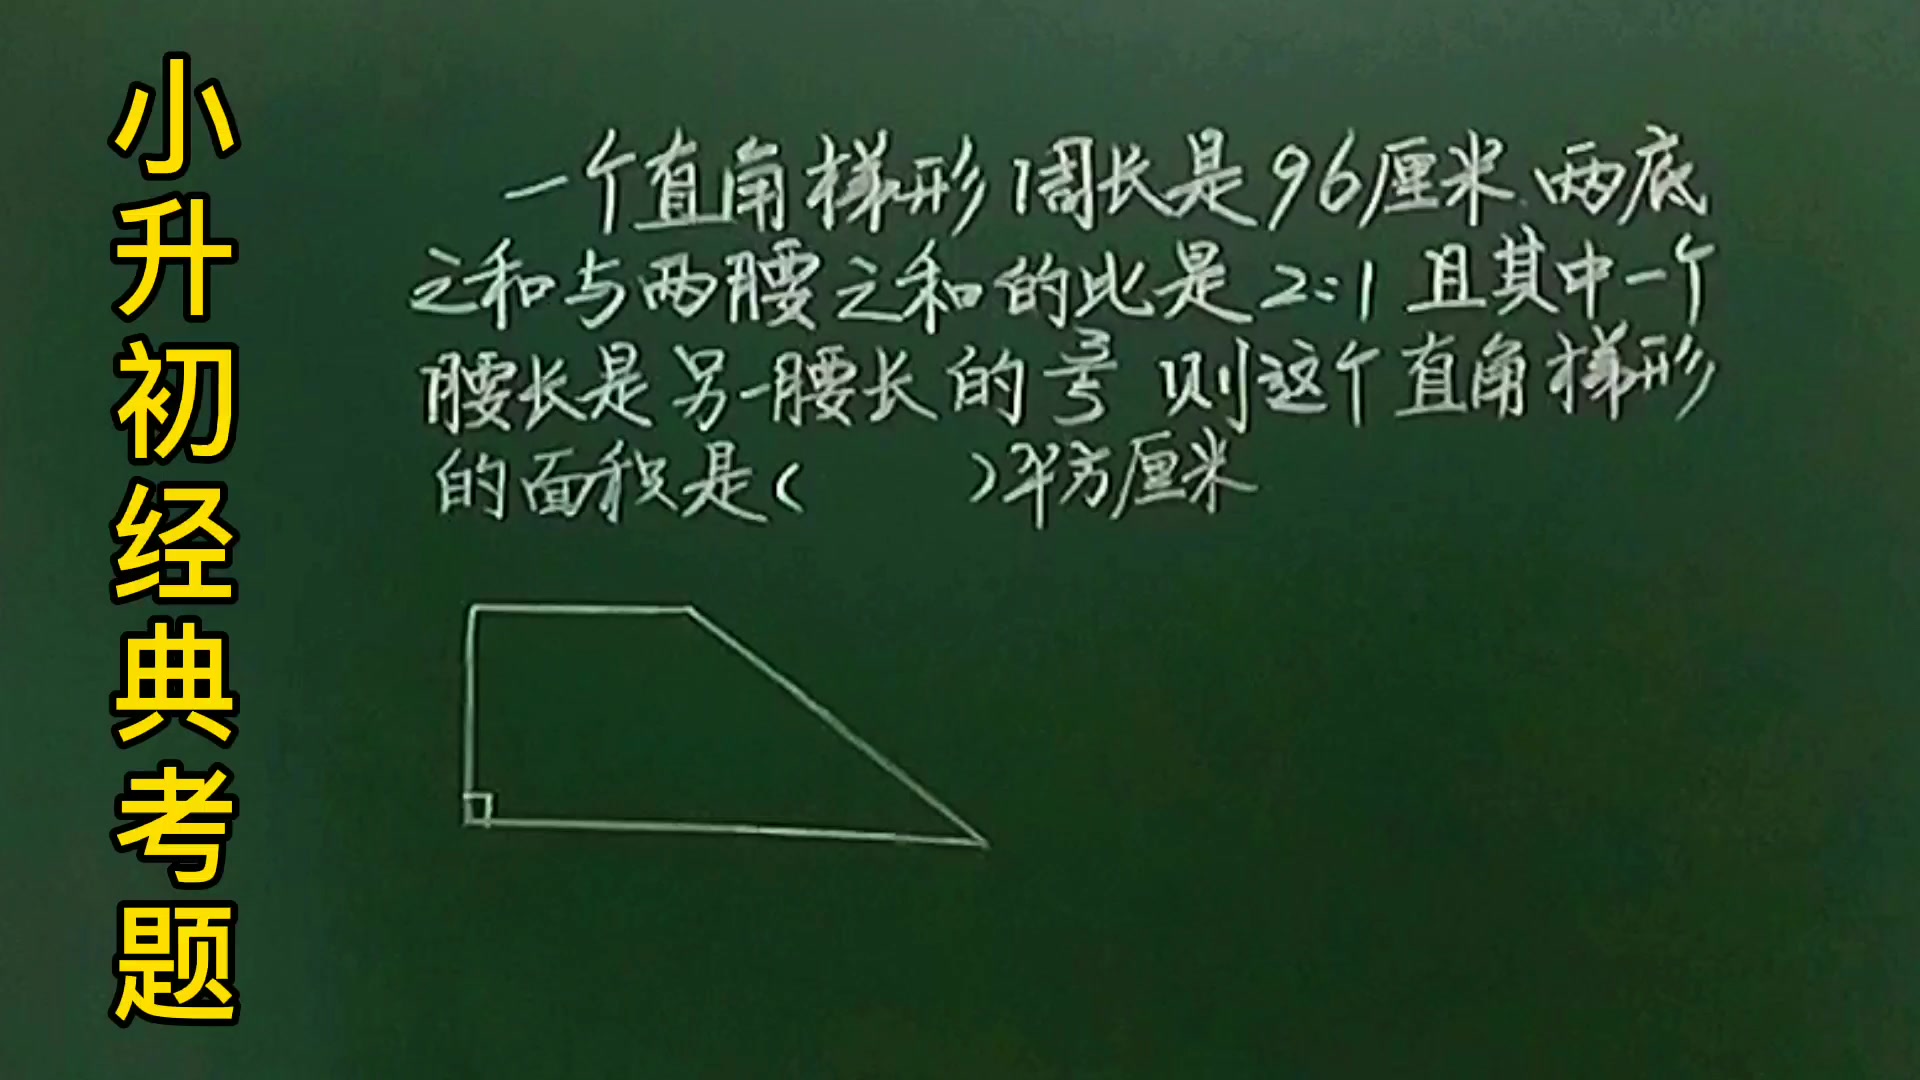 小升初经典考题
一个直角梯形周长是96厘米.两底
之和与两腰之和的比是2:1 且其中一个
腰长是另一腰长的3/5 则这个直角梯形
的面积是(    )平方厘米